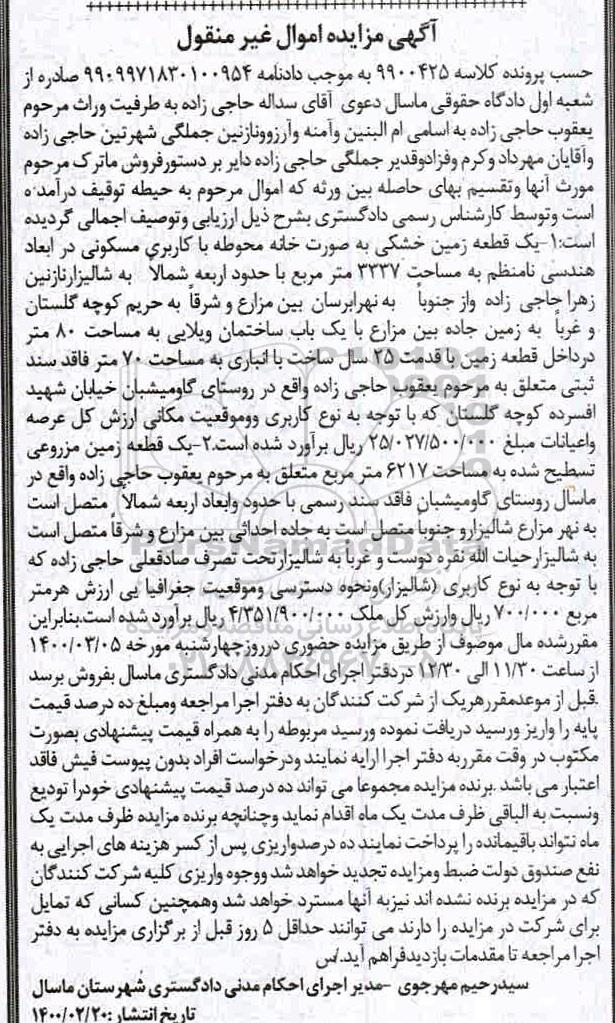 آگهی مزایده اموال غیر منقول
حسب پرونده کلاسه ۹۹۰۰۴۲۵ به موجب دادنامه ۹۹۰۹۹۷۱۸۳۰۱۰۰۹۵۴ صادره از
شعبه اول دادگاه حقوقی ماسال دعوی آقای سداله حاجی زاده به طرفیت وراث مرحوم
یعقوب حاجی زاده به اسامی ام البنین وآمنه وآرزوونازنین جملگی شهرتین حاجی زاده
وآقایان مهرداد وکرم وفزادوقدیر جملگی حاجی زاده دایر بر دستورفروش ماترک مرحوم
مورث آنها وتقسیم بهای حاصله بین ورثه که اموال مرحوم به حیطه توقیف درآمده
است وتوسط کارشناس رسمی دادگستری بشرح ذیل ارزیابی وتوصیف اجمالی گردیده
است:۱-یک قطعه زمین خشکی به صورت خانه محوطه با کاربری مسکونی در ابعاد
هندسی نامنظم به مساحت ۳۳۳۷ متر مربع با حدود اربعه شمالاً به شالیزارنازنین
زهرا حاجی زاده واز جنوباً به نهرابرسان بین مزارع و شرقاً به حریم کوچه گلستان
و غرباً به زمین جاده بین مزارع با یک باب ساختمان ویلایی به مساحت ۸۰ متر
درداخل قطعه زمین با قدمت ۲۵ سال ساخت با انباری به مساحت ۷۰ متر فاقد سند
ثبتی متعلق به مرحوم یعقوب حاجی زاده واقع در روستای گاومیشبان خیابان شهید
افسرده کوچه گلستان که با توجه به نوع کاربری وموقعیت مکانی ارزش کل عرصه
واعیانات مبلغ ۲۵/۰۲۷/۵۰۰/۰۰۰ ریال برآورد شده است.۲-یک قطعه زمین مزروعی
تسطیح شده به مساحت ۶۲۱۷ متر مربع متعلق به مرحوم یعقوب حاجی زاده واقع در
ماسال روستای گاومیشبان فاقد سند رسمی با حدود وابعاد اربعه شمالاً متصل است
به نهر مزارع شالیزارو جنوباً متصل است به جاده احداثی بین مزارع و شرقاً متصل است
به شالیزارحیات الله نقره دوست و غرباً به شالیزارتحت تصرف صادقعلی حاجی زاده که
با توجه به نوع کاربری (شالیزار)ونحوه دسترسی وموقعیت جغرافیا یی ارزش هرمتر
مربع ۷۰۰/۰۰۰ ریال وارزش کل ملک ۴/۳۵۱/۹۰۰/۰۰۰ ریال برآورد شده است.بنابراین
مقررشده مال موصوف از طریق مزایده حضوری درروزچهارشنبه مورخه ۱۴۰۰/۰۳/۰۵
از ساعت ۱۱/۳۰ الی ۱۲/۳۰ دردفتر اجرای احکام مدنی دادگستری ماسال بفروش برسد
.قبل از موعدمقررهریک از شرکت کنندگان به دفتر اجرا مراجعه ومبلغ ده درصد قیمت
پایه را واریز ورسید دریافت نموده ورسید مربوطه را به همراه قیمت پیشنهادی بصورت
مکتوب در وقت مقرربه دفتر اجرا ارایه نمایند ودرخواست افراد بدون پیوست فیش فاقد
اعتبار می باشد .برنده مزایده مجموعا می تواند ده درصد قیمت پیشنهادی خودرا تودیع
ونسبت به الباقی ظرف مدت یک ماه اقدام نماید وچنانچه برنده مزایده ظرف مدت یک
ماه نتواند باقیمانده را پرداخت نمایند ده درصدواریزی پس از کسر هزینه های اجرایی به
نفع صندوق دولت ضبط ومزایده تجدید خواهد شد ووجوه واریزی کلیه شرکت کنندگان
که در مزایده برنده نشده اند نیزبه آنها مسترد خواهد شد وهمچنین کسانی که تمایل
برای شرکت در مزایده را دارند می توانند حداقل ۵ روز قبل از برگزاری مزایده به دفتر
اجرا مراجعه تا مقدمات بازدیدفراهم آید./س
سیدرحیم مهرجوی -مدیر اجرای احکام مدنی دادگستری شهرستان ماسال
تاریخ انتشار:۱۴۰۰/۰۲/۲۰